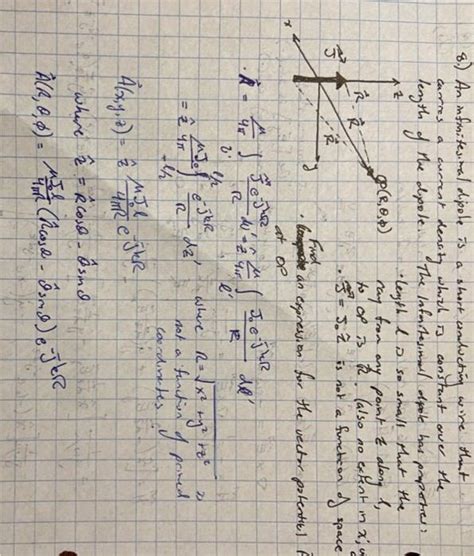 8) An infinitesimal dipole is a short conducting wire that
carries a current density which is constant over the
length of the dipole. The infinitesimal dipole has properties:
· length l is so small that the
ray from any point z along l,
to OP is R. (also no extent in x,
· J = J₀ ẑ is not a function of space
x
z
y
J
R
R
OP(R,θ,ϕ)
· Find an expression for the vector potential
at OP
· A = μ/4π ∫ J e^-jkR / R dv' = ẑ μ/4π ∫ J₀ e^-jkR / R dl'
v' l'
= ẑ μJ₀/4π ∫ e^-jkR / R dz', where R = √x² + y² + z² is
l/2
-l/2
not a function of primed
coordinates
A(x,y,z) = ẑ μJ₀l/4πR e^-jkR
where ẑ = R̂cosθ - θ̂sinθ
A(R,θ,ϕ) = μJ₀l/4πR (R̂cosθ - θ̂sinθ) e^-jkR